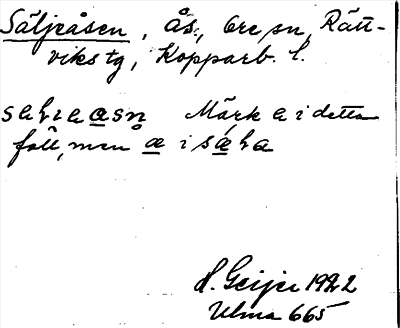 Säljeåsen, ås, Ore sn, Rätt-
viks tg, Kopparb. l.
Märk a i detta
fall, men æ i
H. Geijer 1922
Ulma 665